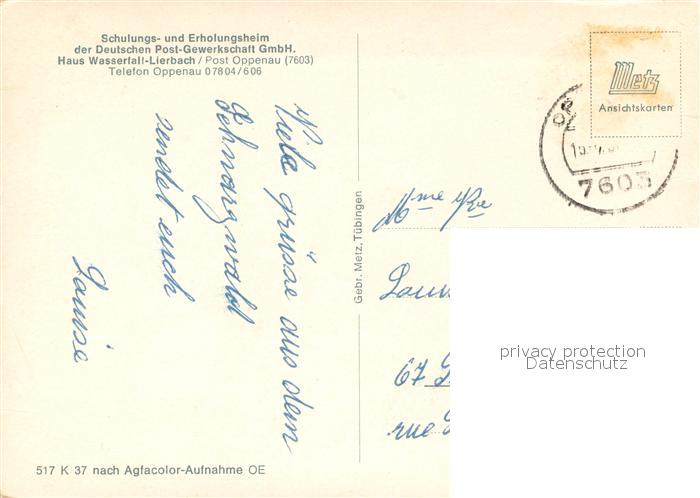 Schulungs- und Erholungsheim
der Deutschen Post-Gewerkschaft GmbH.
Haus Wasserfall-Lierbach / Post Oppenau (7603)
Telefon Oppenau 07804/606
Viele grüsse aus dem
Schwarzwald
sendet euch
Louise
517 K 37 nach Agfacolor-Aufnahme OE
Gebr. Metz, Tübingen
Metz
Ansichtskarten
7603
Mme
67
rue
privacy protection
Datenschutz